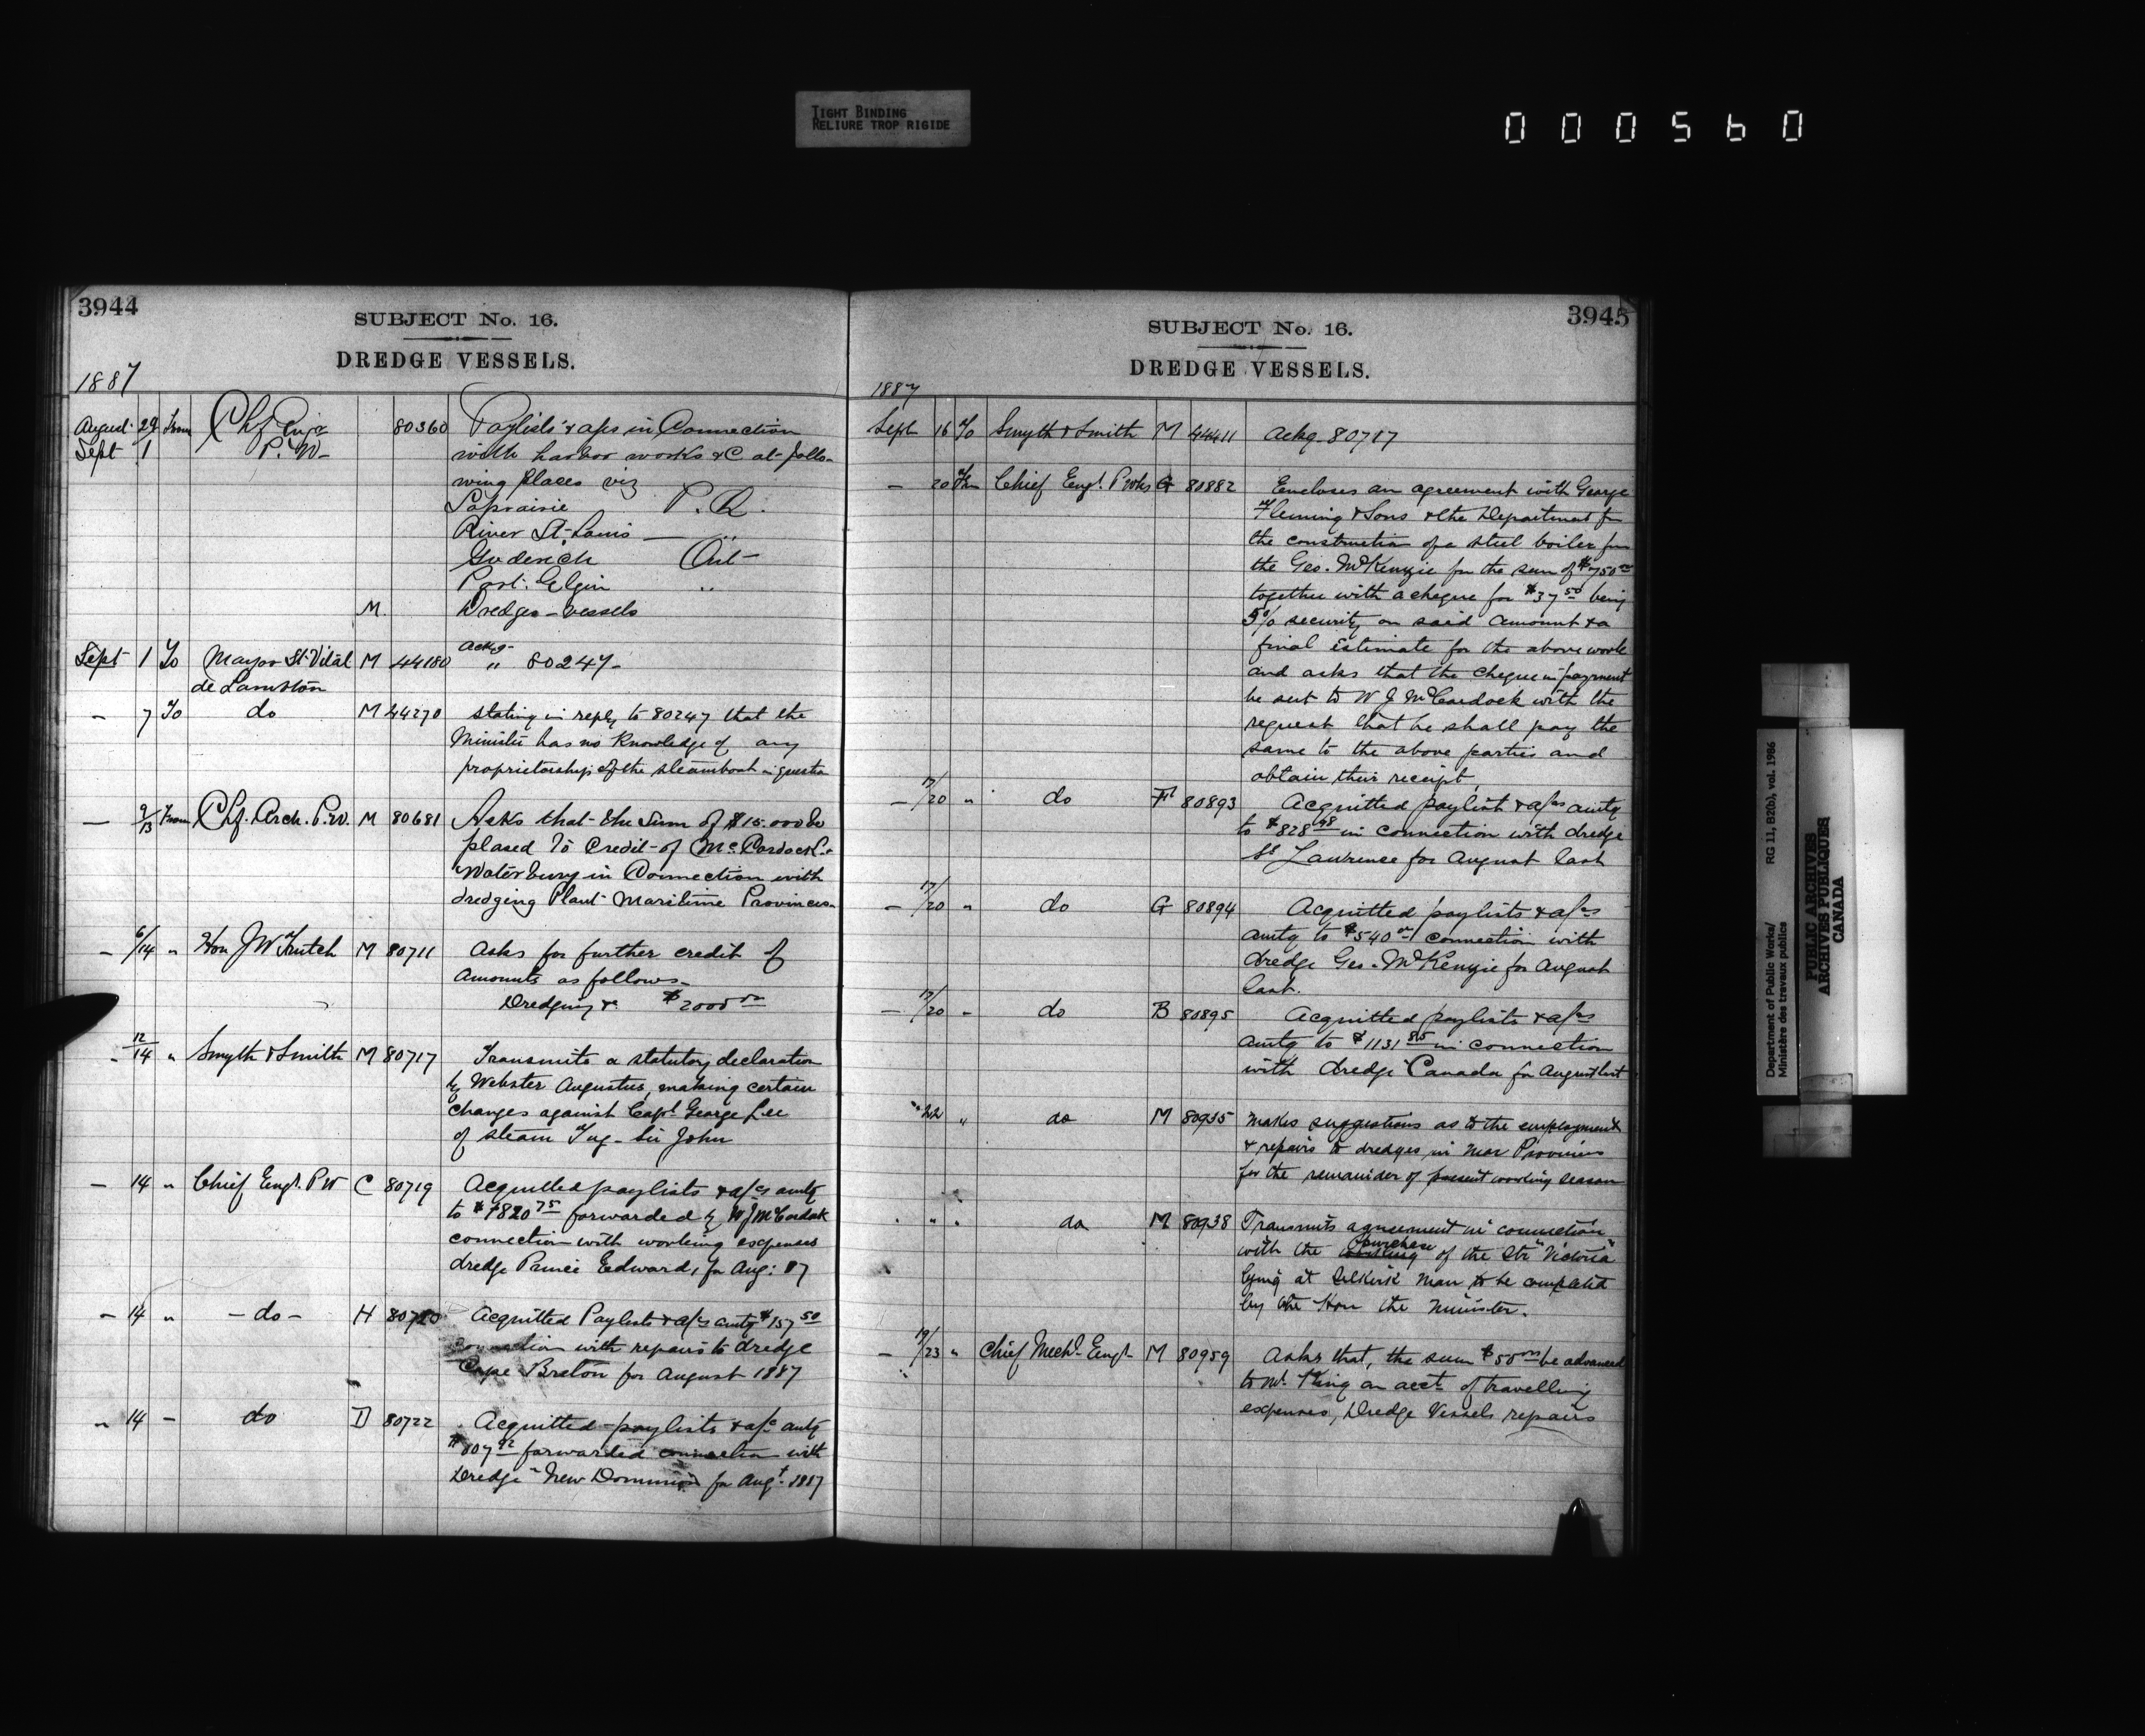 TIGHT BINDING
RELIURE TROP RIGIDE
000560
3944
SUBJECT No. 16.
DREDGE VESSELS.
1887
August 29 From Chf Engr 80360 Paylists & a/cs in Connection
Sept 1 P.W- with harbor works &C at follo-
wing places viz
Laprairie P.Q.
River St-Louis — "
Goderich Ont-
Port Elgin "
M. Dredges-vessels
Sept 1 To Mayor St Vital M 44180 Ackg- " 80247-
de Lambton
- 7 To do M 44270 stating in reply to 80247 that the
Minister has no Knowledge of any
proprietorship of the steamboat in question
— 9/13 From Chf. Arch. P.W. M 80681 Asks that the Sum of $15.000 be
plased To Credit of McCordock &
Waterbury in Connection with
dredging Plant Maritime Provinces-
- 6/14 " Hon J W Trutch M 80711 Asks for further credit of
Amounts as follows-
Dredging &c $2000 00
- 12/14 " Smyth & Smith M 80717 Transmits a statutory declaration
by Webster Augustus, making certain
charges against Capt George Lee
of steam Tug- Sir John
- 14 " Chief Engr. P W C 80719 Acquitted paylists & a/cs amtg
to $1820 75 forwarded by W J McCordock
connection with working expenses
dredge Prince Edward, for Aug: 87
- 14 " - do - H 80720 Acquitted Paylists & a/cs amtg $157 50
connection with repairs to dredge
Cape Breton for August 1887
" 14 - do D 80722 Acquitted paylists & a/cs amtg
forwarded connection with
Dredge "New Dominion for Augt. 1887
3945
SUBJECT No. 16.
DREDGE VESSELS.
1887
Sept 16 To Smyth & Smith M 44411 Ackg 80717
- 20 Fm Chief Engr. P Wks G 80882 Encloses an agreement with George
Fleming & Sons & the Department for
the construction of a steel boiler for
the Geo. McKenzie for the sum of $750 00
together with a cheque for $37 50 being
5% security on said amount & a
final Estimate for the above work
and asks that the cheque in payment
be sent to W J McCordock with the
request that he shall pay the
same to the above parties and
obtain their receipt,
- 17/20 " do F 80893 Acquitted paylist & a/cs amtg
to $828 48 in connection with dredge
St Lawrence for August last
- 17/20 " do G 80894 Acquitted paylists & a/cs
amtg to $540 00 connection with
dredge Geo. McKenzie for August
last.
- 17/20 - do B 80895 Acquitted paylists & a/cs
amtg to $1131 85 in connection
with dredge Canada for August last
" 22 " do M 80935 Makes suggestions as to the employment
& repairs to dredges in Mar Provinces
for the remainder of present working season
" " " do M 80938 Transmits agreement in connection
with the purchase of the Str "Victoria"
lying at Selkirk Man to be completed
by the Hon the Minister.
- 19/23 " Chief Mechl. Engr M 80959 Asks that, the sum $50 00 be advanced
to Mr. King on acct of travelling
expenses, Dredge Vessels repairs
Department of Public Works/ RG 11, B2(b), vol. 1986
Ministère des travaux publics
PUBLIC ARCHIVES
ARCHIVES PUBLIQUES
CANADA